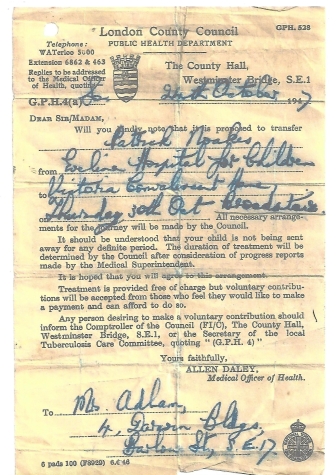 London County Council
GPH. 528
PUBLIC HEALTH DEPARTMENT
Telephone:
WATerloo 5000
Extension 6862 & 463
Replies to be addressed
to the Medical Officer
of Health, quoting
The County Hall,
Westminster Bridge, S.E.1
G.P.H.4(a)
24th October 1947
DEAR SIR/MADAM,
Will you kindly note that it is proposed to transfer
Patrick
from Evelina Hospital for Children
to Victoria Convalescent Home
on Thursday 30th Oct Broadstairs. All necessary arrange-
ments for the journey will be made by the Council.
It should be understood that your child is not being sent
away for any definite period. The duration of treatment will be
determined by the Council after consideration of progress reports
made by the Medical Superintendent.
It is hoped that you will agree to this arrangement.
Treatment is provided free of charge but voluntary contribu-
tions will be accepted from those who feel they would like to make
a payment and can afford to do so.
Any person desiring to make a voluntary contribution should
inform the Comptroller of the Council (FI/C), The County Hall,
Westminster Bridge, S.E.1, or the Secretary of the local
Tuberculosis Care Committee, quoting " (G.P.H. 4) "
Yours faithfully,
ALLEN DALEY,
Medical Officer of Health.
To Mrs Adlam,
4, Darwin Bldgs,
Barlow St, S.E.17.
6 pads 100 (F8929) 6.6.46